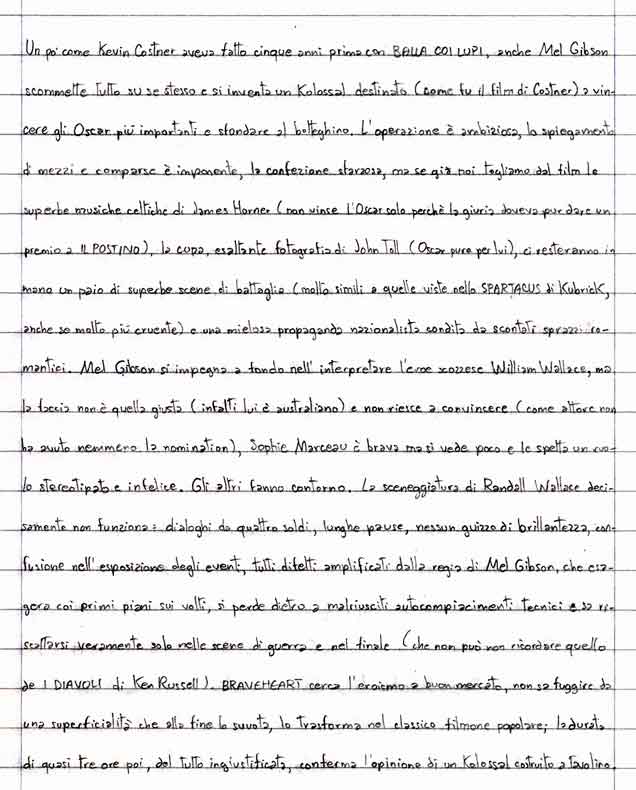 Un po' come Kevin Costner aveva fatto cinque anni prima con BALLA COI LUPI, anche Mel Gibson
scommette tutto su se stesso e si inventa un Kolossal destinato (come fu il film di Costner) a vin-
cere gli Oscar più importanti e sfondare al botteghino. L'operazione è ambiziosa, lo spiegamento
di mezzi e comparse è imponente, la confezione sfarzosa, ma se già noi togliamo dal film le
superbe musiche celtiche di James Horner (non vinse l'Oscar solo perchè la giuria doveva pur dare un
premio a IL POSTINO), la cupa, esaltante fotografia di John Toll (Oscar pure per lui), ci resteranno in
mano un paio di superbe scene di battaglia (molto simili a quelle viste nello SPARTACUS di Kubrick,
anche se molto più cruente) e una mielosa propaganda nazionalista condita da scontati sprazzi ro-
mantici. Mel Gibson si impegna a fondo nell'interpretare l'eroe scozzese William Wallace, ma
la faccia non è quella giusta (infatti lui è australiano) e non riesce a convincere (come attore non
ha avuto nemmeno la nomination), Sophie Marceau è brava ma si vede poco e le spetta un ruo-
lo stereotipato e infelice. Gli altri fanno contorno. La sceneggiatura di Randall Wallace deci-
samente non funziona: dialoghi da quattro soldi, lunghe pause, nessun guizzo di brillantezza, con-
fusione nell'esposizione degli eventi, tutti difetti amplificati dalla regia di Mel Gibson, che esa-
gera coi primi piani sui volti, si perde dietro a malriusciti autocompiacimenti tecnici e sa ri-
scattarsi veramente solo nelle scene di guerra e nel finale (che non può non ricordare quello
de I DIAVOLI di Ken Russell). BRAVEHEART cerca l'eroismo a buon mercato, non sa fuggire da
una superficialità che alla fine lo svuota, lo trasforma nel classico filmone popolare; la durata
di quasi tre ore poi, del tutto ingiustificata, conferma l'opinione di un Kolossal costruito a tavolino.